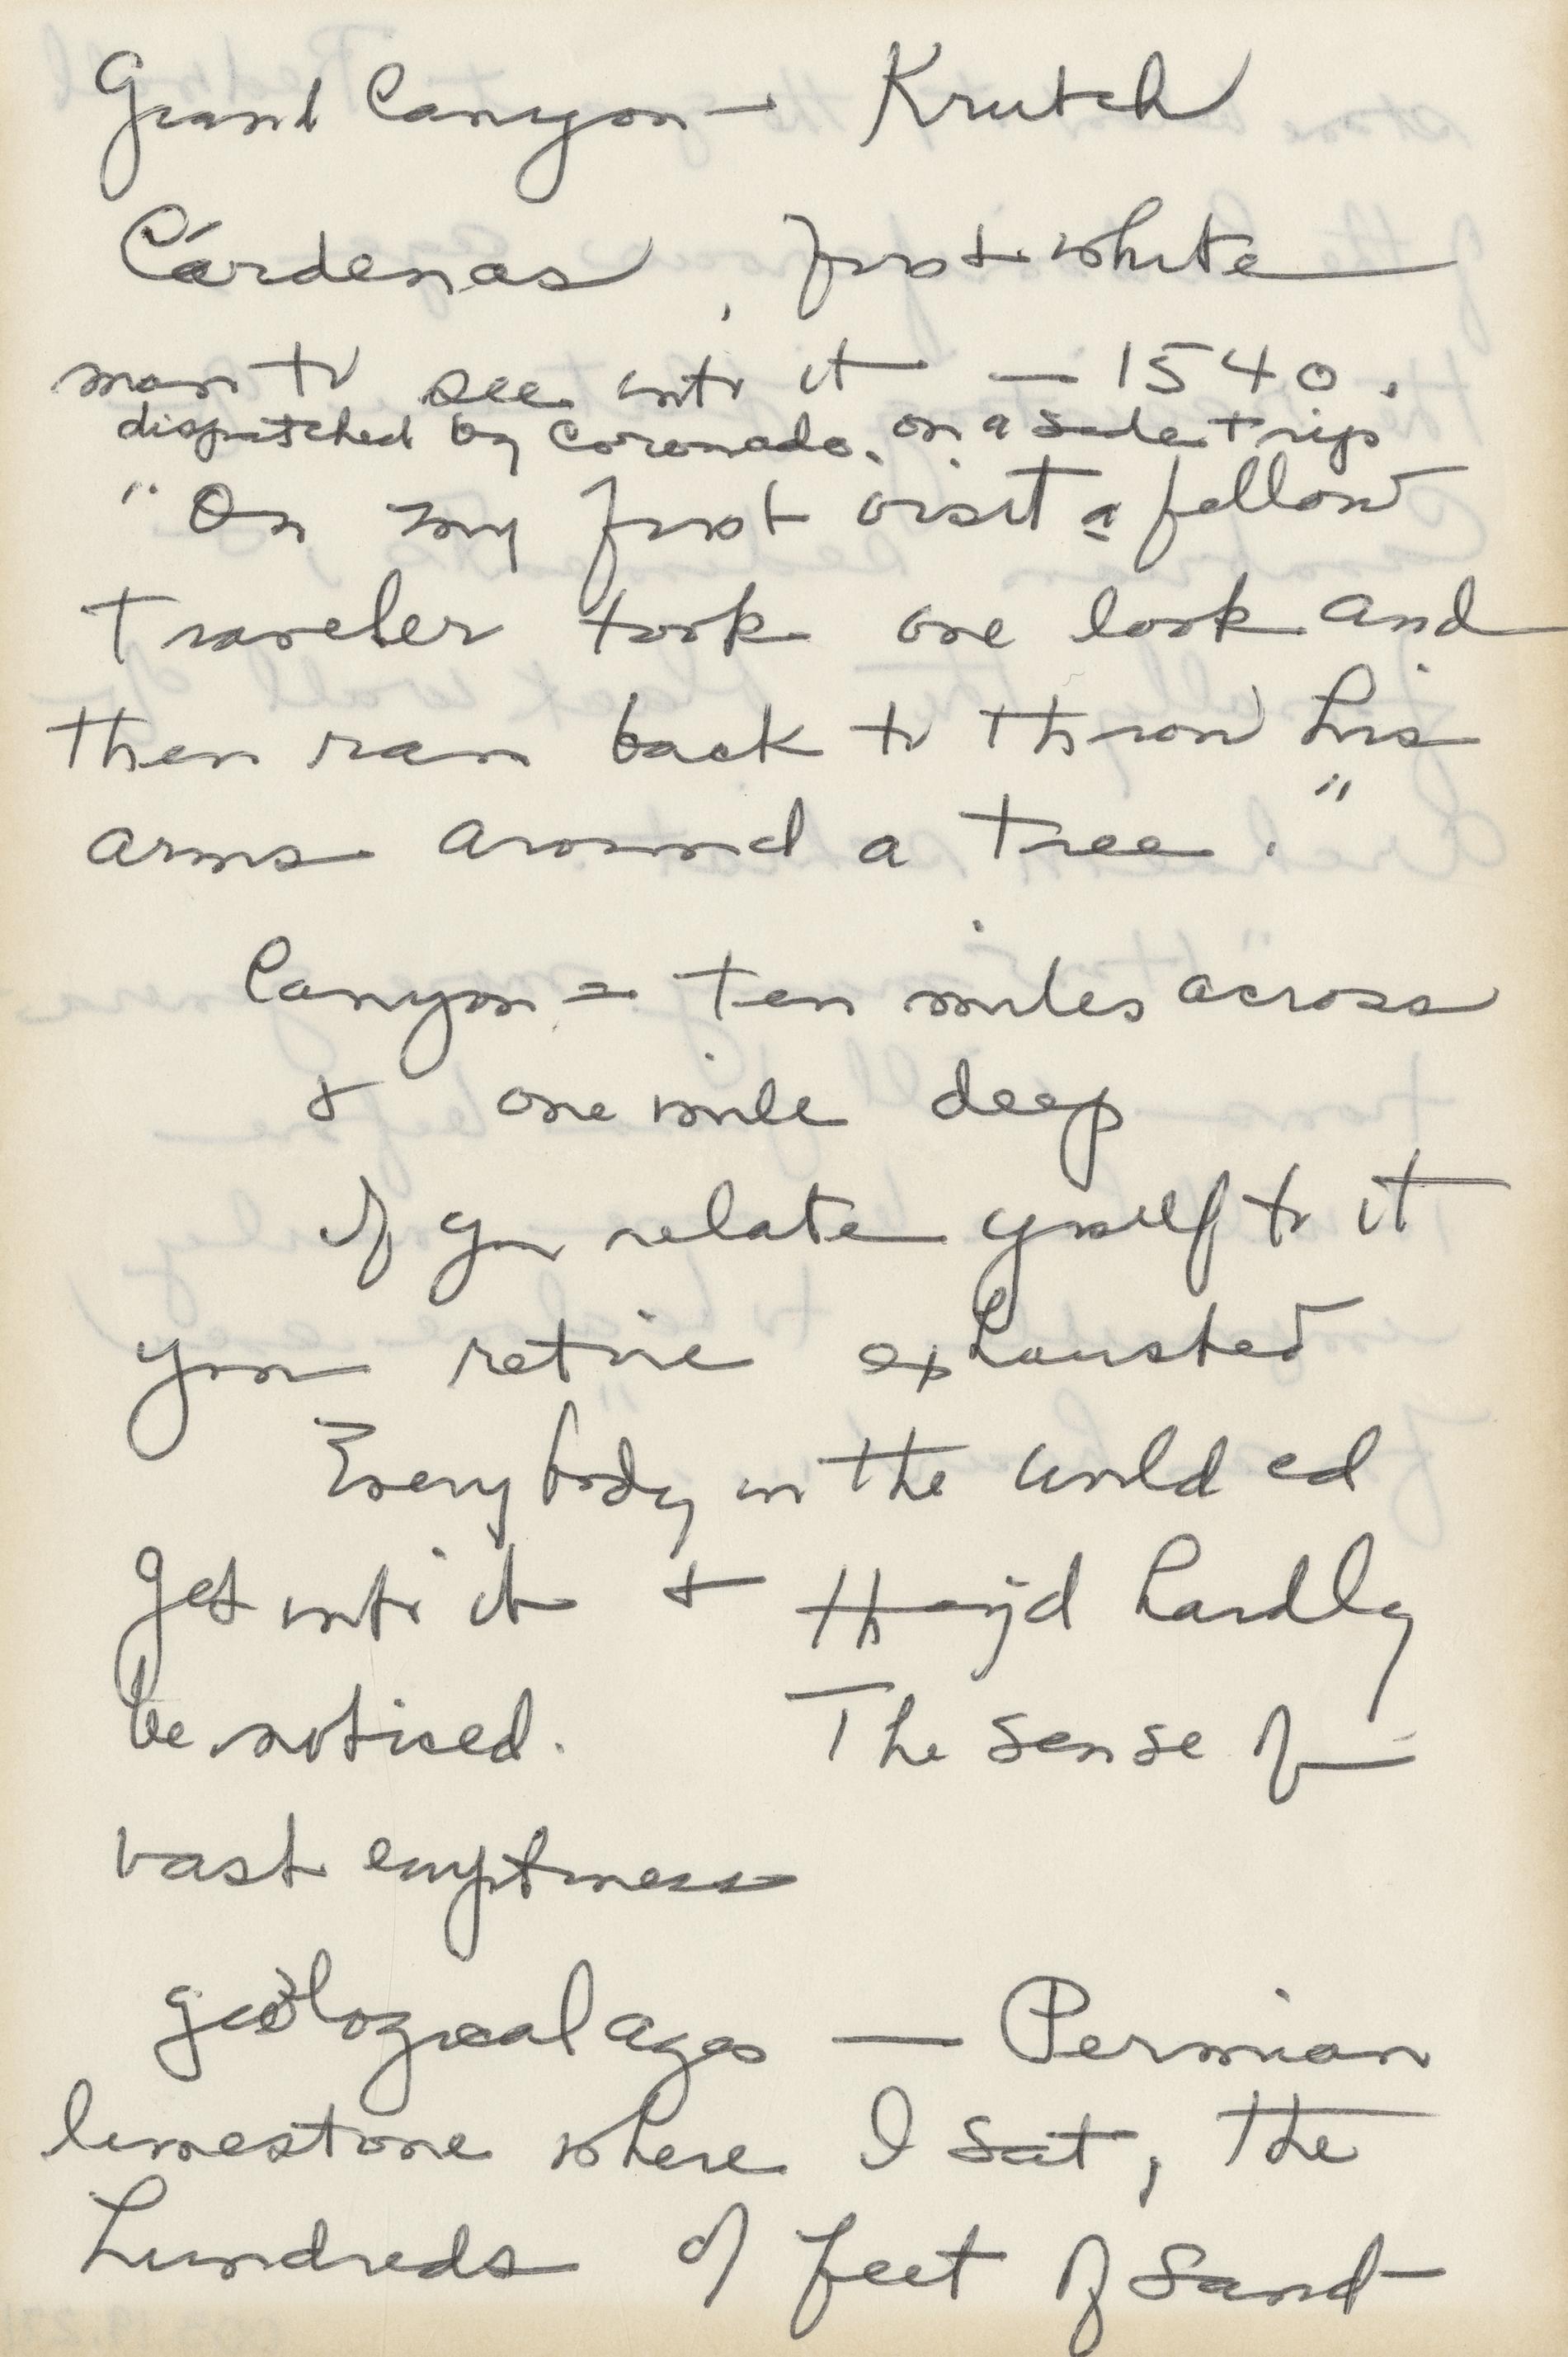 Grand Canyon — Krutch
Cárdenas, first white
man to see into it — 1540.
dispatched by Coronado. on a side trip
"On my first visit a fellow
traveler took one look and
then ran back to throw his
arms around a tree."
Canyon = ten miles across
& one mile deep
if you relate yrself to it
you retire exhausted
Everybody in the world cd
get into it & they'd hardly
be noticed. The sense of
vast emptiness
geological ages — Permian
limestone where I sat, the
hundreds of feet of sand